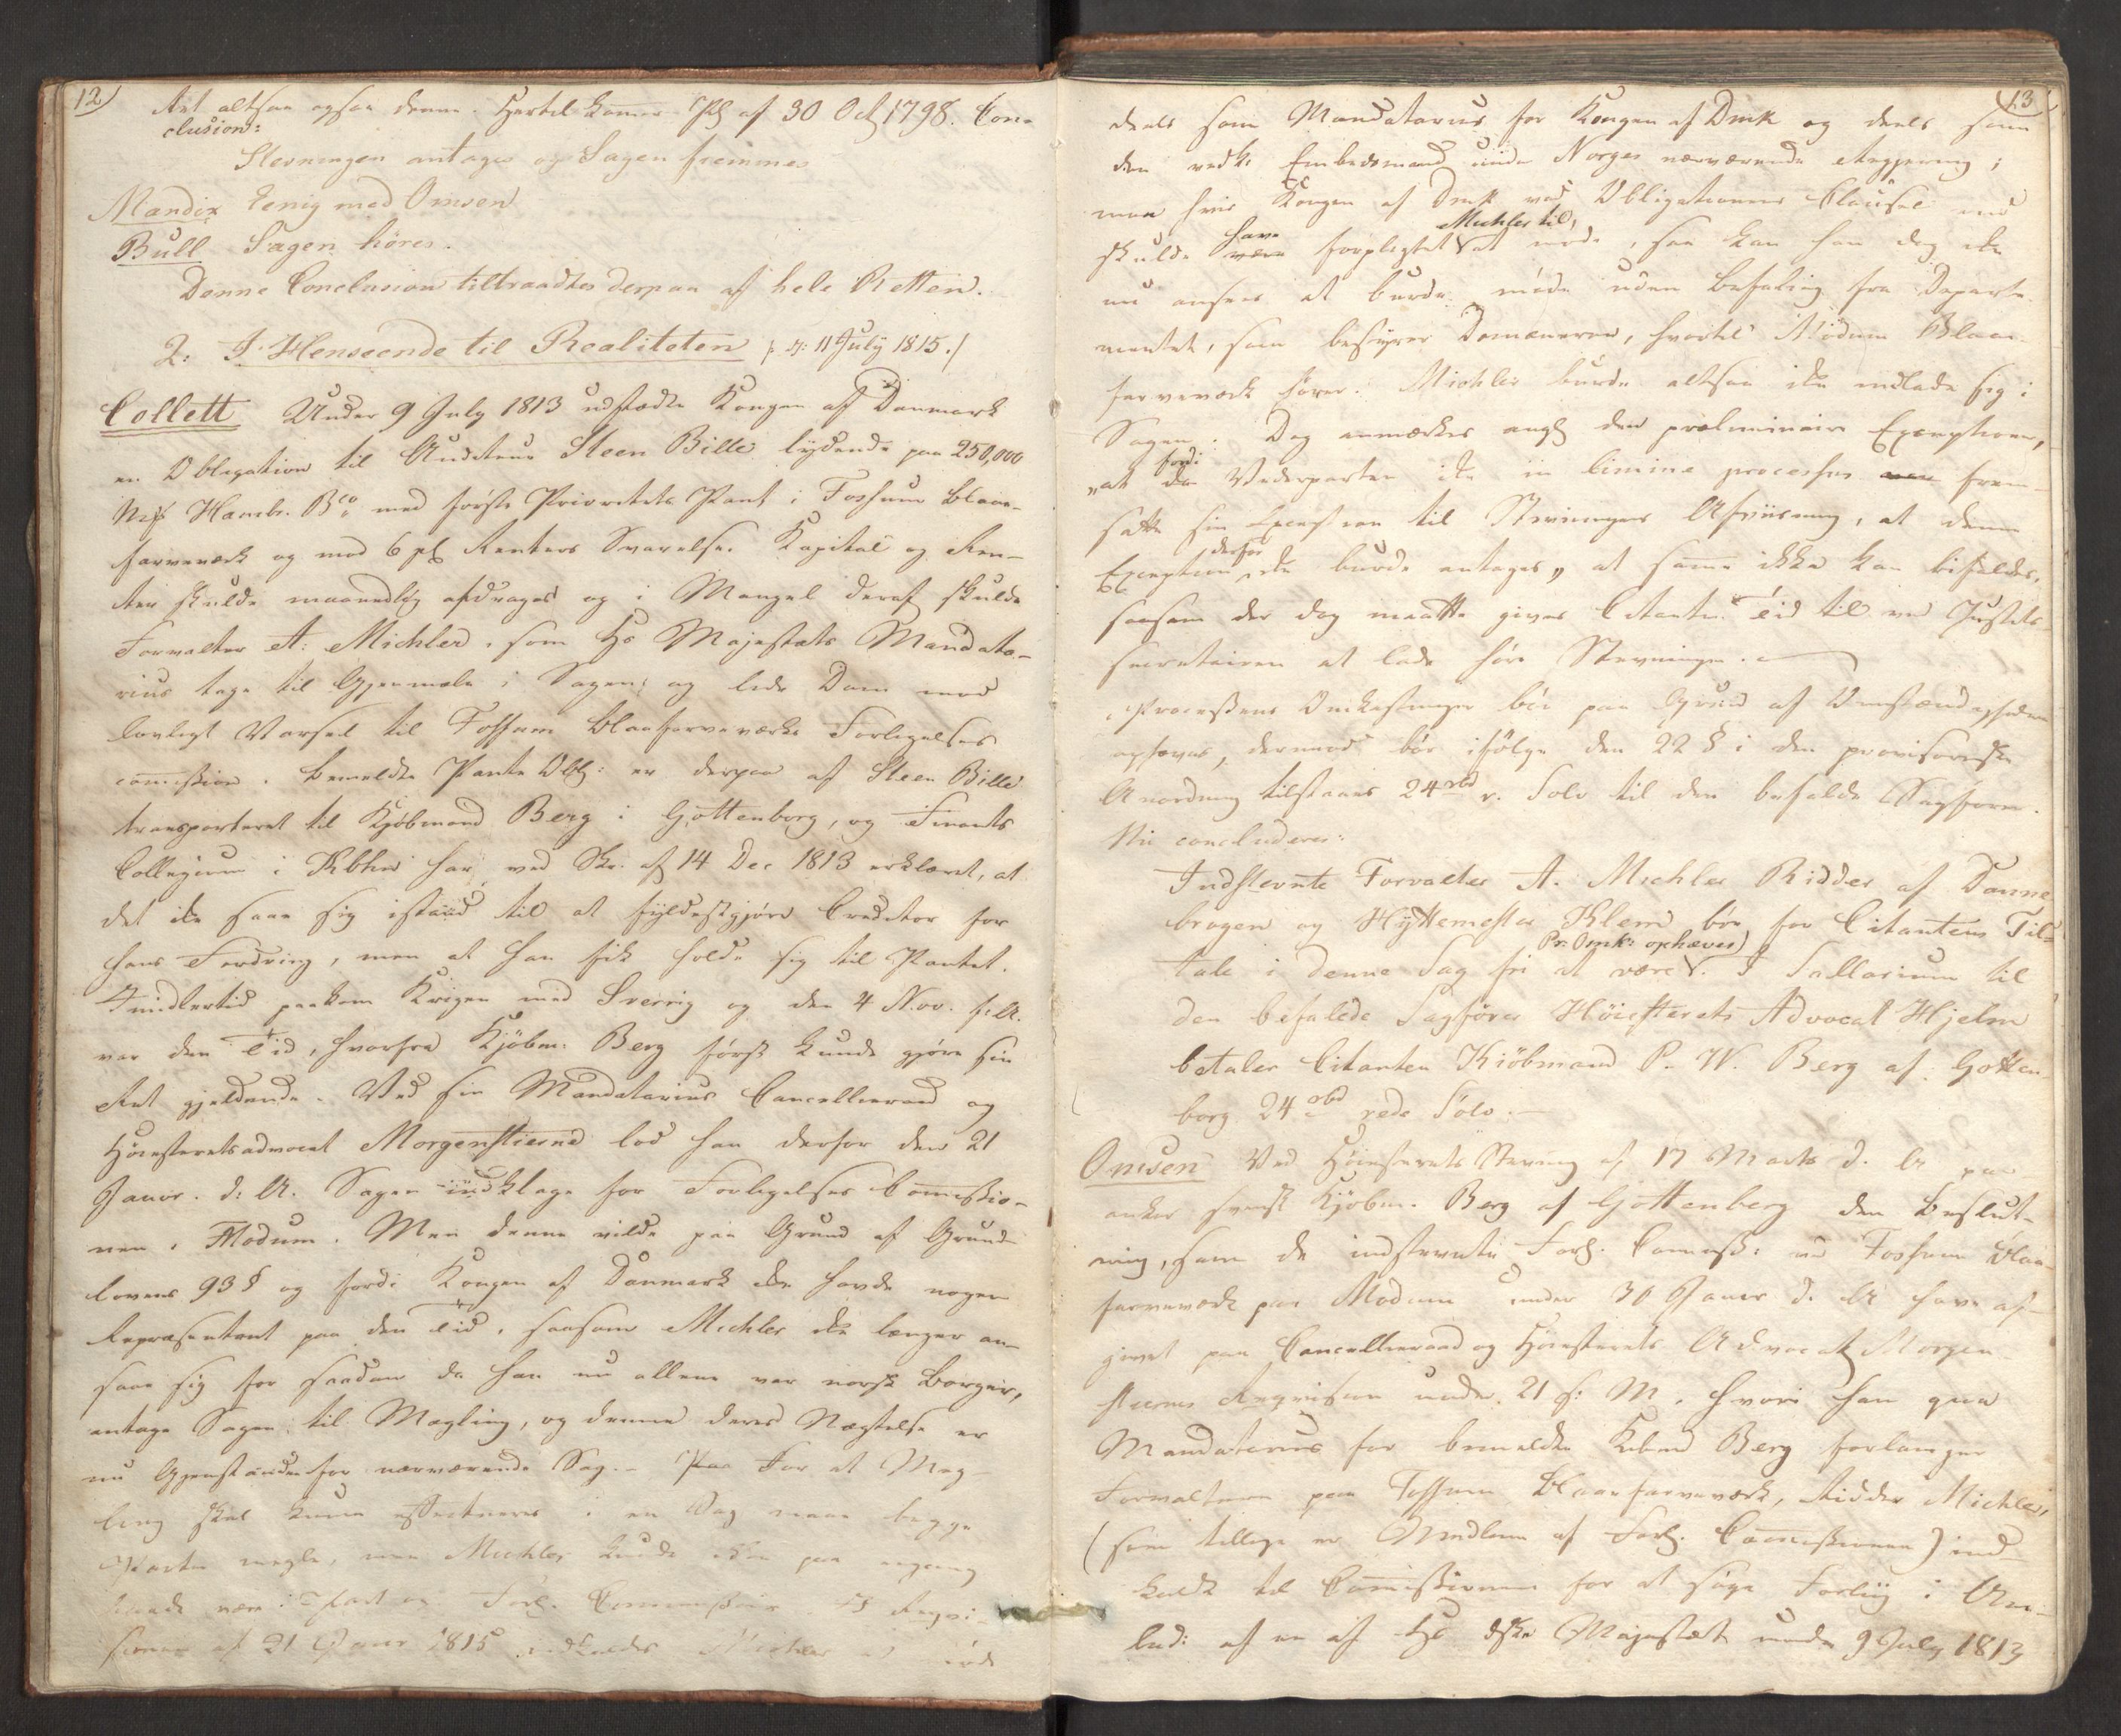 12)
Ret altsaa ogsaa denne. Hertil kom̄er Pl af 30 Oct 1798. Con-
clusion:
Stevningen antages og Sagen fremmes
Mandix Eenig med Omsen
Bull Sagen høres.
Denne Conclusion tiltraadtes derpaa af hele Retten.
2: I Henseende til Realiteten /: D: 11 July 1815./
Collett Under 9 July 1813 udstædte Kongen af Danmark
en Obligation til Auditeur Steen Bille lydende paa 250,000
Mk Hambr. Bco med første Prioritets Pant i Fossum Blaae-
farveværk og mod 6 pC Renters Svarelse. Kapital og Ren-
ter skulde maanedlig afdrages og i Mangel deraf skulde
Forvalter A: Michler, som Hs Majestæts Mandata-
rius tage til Gjenmæle i Sagen, og lide Dom med
lovligt Varsel til Fossum Blaafarveværks Forligelses
com̄ission. Bemeldte Pante Obl: er derpaa af Steen Bille
transporteret til Kjøbmand Berg i Gottenborg, og Finants
Collegium i Kbhn har ved Skr. af 14 Dec 1813 erklæret, at
det ikke saae sig istand til at fyldestgjøre Creditor for
hans Fordring, men at han fik holde sig til Pantet.
Imidlertid paakom Krigen med Sverrig og den 4 Nov. f: A.
var den Tid, hvorfra Kjöbm: Berg først kunde gjøre sin
Ret gjeldende. Ved sin Mandatarius Cancellieraad og
Høiesteretsadvocat Morgenstierne lod han derfor den 21
Januar. d: A. Sagen indklage for Forligelses Com̄issio-
nen i Modum. Men denne vilde paa Grund af Grund-
lovens 93 § og fordi Kongen af Danmark ikke havde nogen
Repræsentant paa den Tid, saasom Michler ikke længer an-
saae sig for saadan da han nu allene var norsk Borger,
antage Sagen til Mægling, og denne deres Nægtelse er
nu Gjenstanden for nærværende Sag. – For at Mæg-
ling skal kunne effectueres i en Sag maae begge
Parter mægle, men Michler kunde ikke paa engang
baade være Part og Forl. Commissair. I Reqvi-
sitionen af 21 Janr 1815 indkaldes Michler at møde
13
deels som Mandatarius for Kongen af Dmk og deels som
den vedk: Embedsmand under Norges nærværende Regjering;
men hvis Kongen af Dmk ved Obligationens Clausul end
skulde have forpligtet Michler til, at møde, saa kan han dog ikke
nu ansees at burde møde uden Befaling fra Departe-
mentet, som bestyrer Domænerne, hvortil Modum Blaae-
farveværk hører. Michler burde altsaa ikke indlade sig i
Sagen. Dog anmærkes angl den præliminaire Exception,
„at fordi Vederparten ikke in limine processus frem-
satte sin Exception til Stevningens Afviisning, at denne
Exception derfor ikke burde antages„ at samme ikke kan bifaldes,
saasom der dog maatte gives Citanten Tid til ved Justits-
secretairen at lade høre Stevningen. –
Processens Omkostninger bør paa Grund af Omstændighederne
ophæves, derimod bør ifölge den 22 § i den provisoriske
Anordning tilstaaes 24 rbd r. Sølv til den befalede Sagfører.
Nu concluderes:
Indstevnte Forvalter A. Michler Ridder af Danne
brogen og Hyttemester Klem bør for Citantens Til-
tale i denne Sag fri at være (Pr: Omk: ophæves). I Sallarium til
den befalede Sagfører Høiesterets Advocat Hjelm
betaler Citanten Kiöbmand P. W. Berg af Gotten
borg 24 rbd rede Sölv. –
Omsen Ved Høiesterets Stevning af 17 Marts d. A paa-
anker svensk Kjøbm. Berg af Gottenberg den Beslut-
ning, som de indstevnte Forl. Com̄iss: ved Fossum Blaae-
farveværk paa Modum under 30 Janr d. A have af-
givet paa Cancellieraad og Høiesterets Advocat Morgen-
stiernes Reqvisition under 21 s: M, hvori han qua
Mandatarius for bemeldte Kbmd Berg forlanger
Forvalteren paa Fossum Blaafarveværk, Ridder Michler,
(som tillige er Medlem af Forl. Com̄issionen) ind-
kaldt til Com̄issionen for at søge Forlig i An-
led: af en af Hs dske Majestæt under 9 July 1813